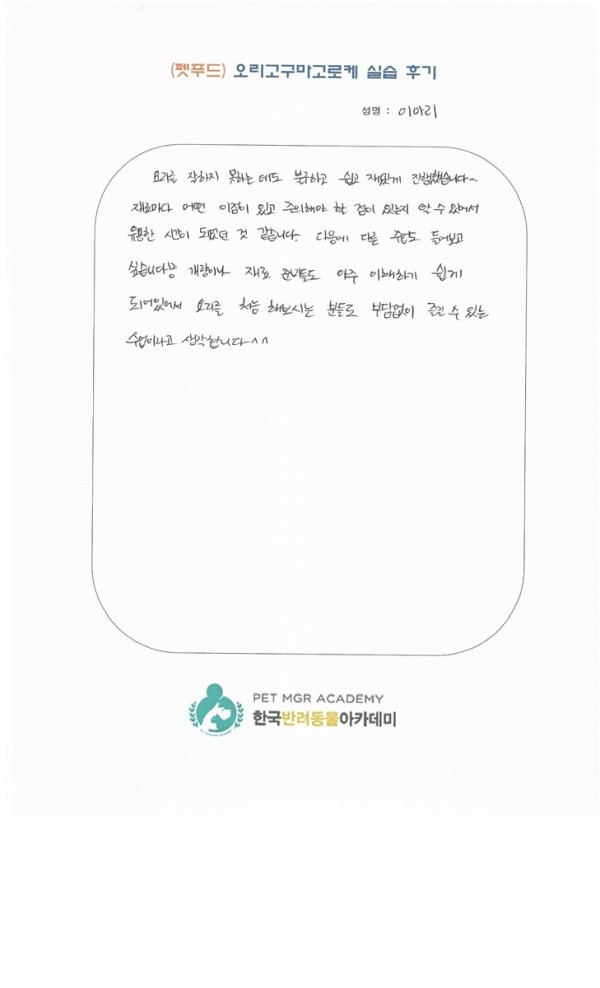 (펫푸드) 오리고구마고로케 실습 후기
성명 : 이아리
요리를 잘하지 못하는데도 불구하고 쉽고 재밌게 진행했습니다~
재료마다 어떤 이점이 있고 주의해야 할 점이 있는지 알 수 있어서
유용한 시간이 되었던 것 같습니다. 다음에 다른 수업도 들어보고
싶습니다 계량이나 재료 준비들도 아주 이해하기 쉽게
되어있어서 요리를 처음 해보시는 분들도 부담없이 즐길 수 있는
수업이라고 생각합니다^^
PET MGR ACADEMY
한국반려동물아카데미